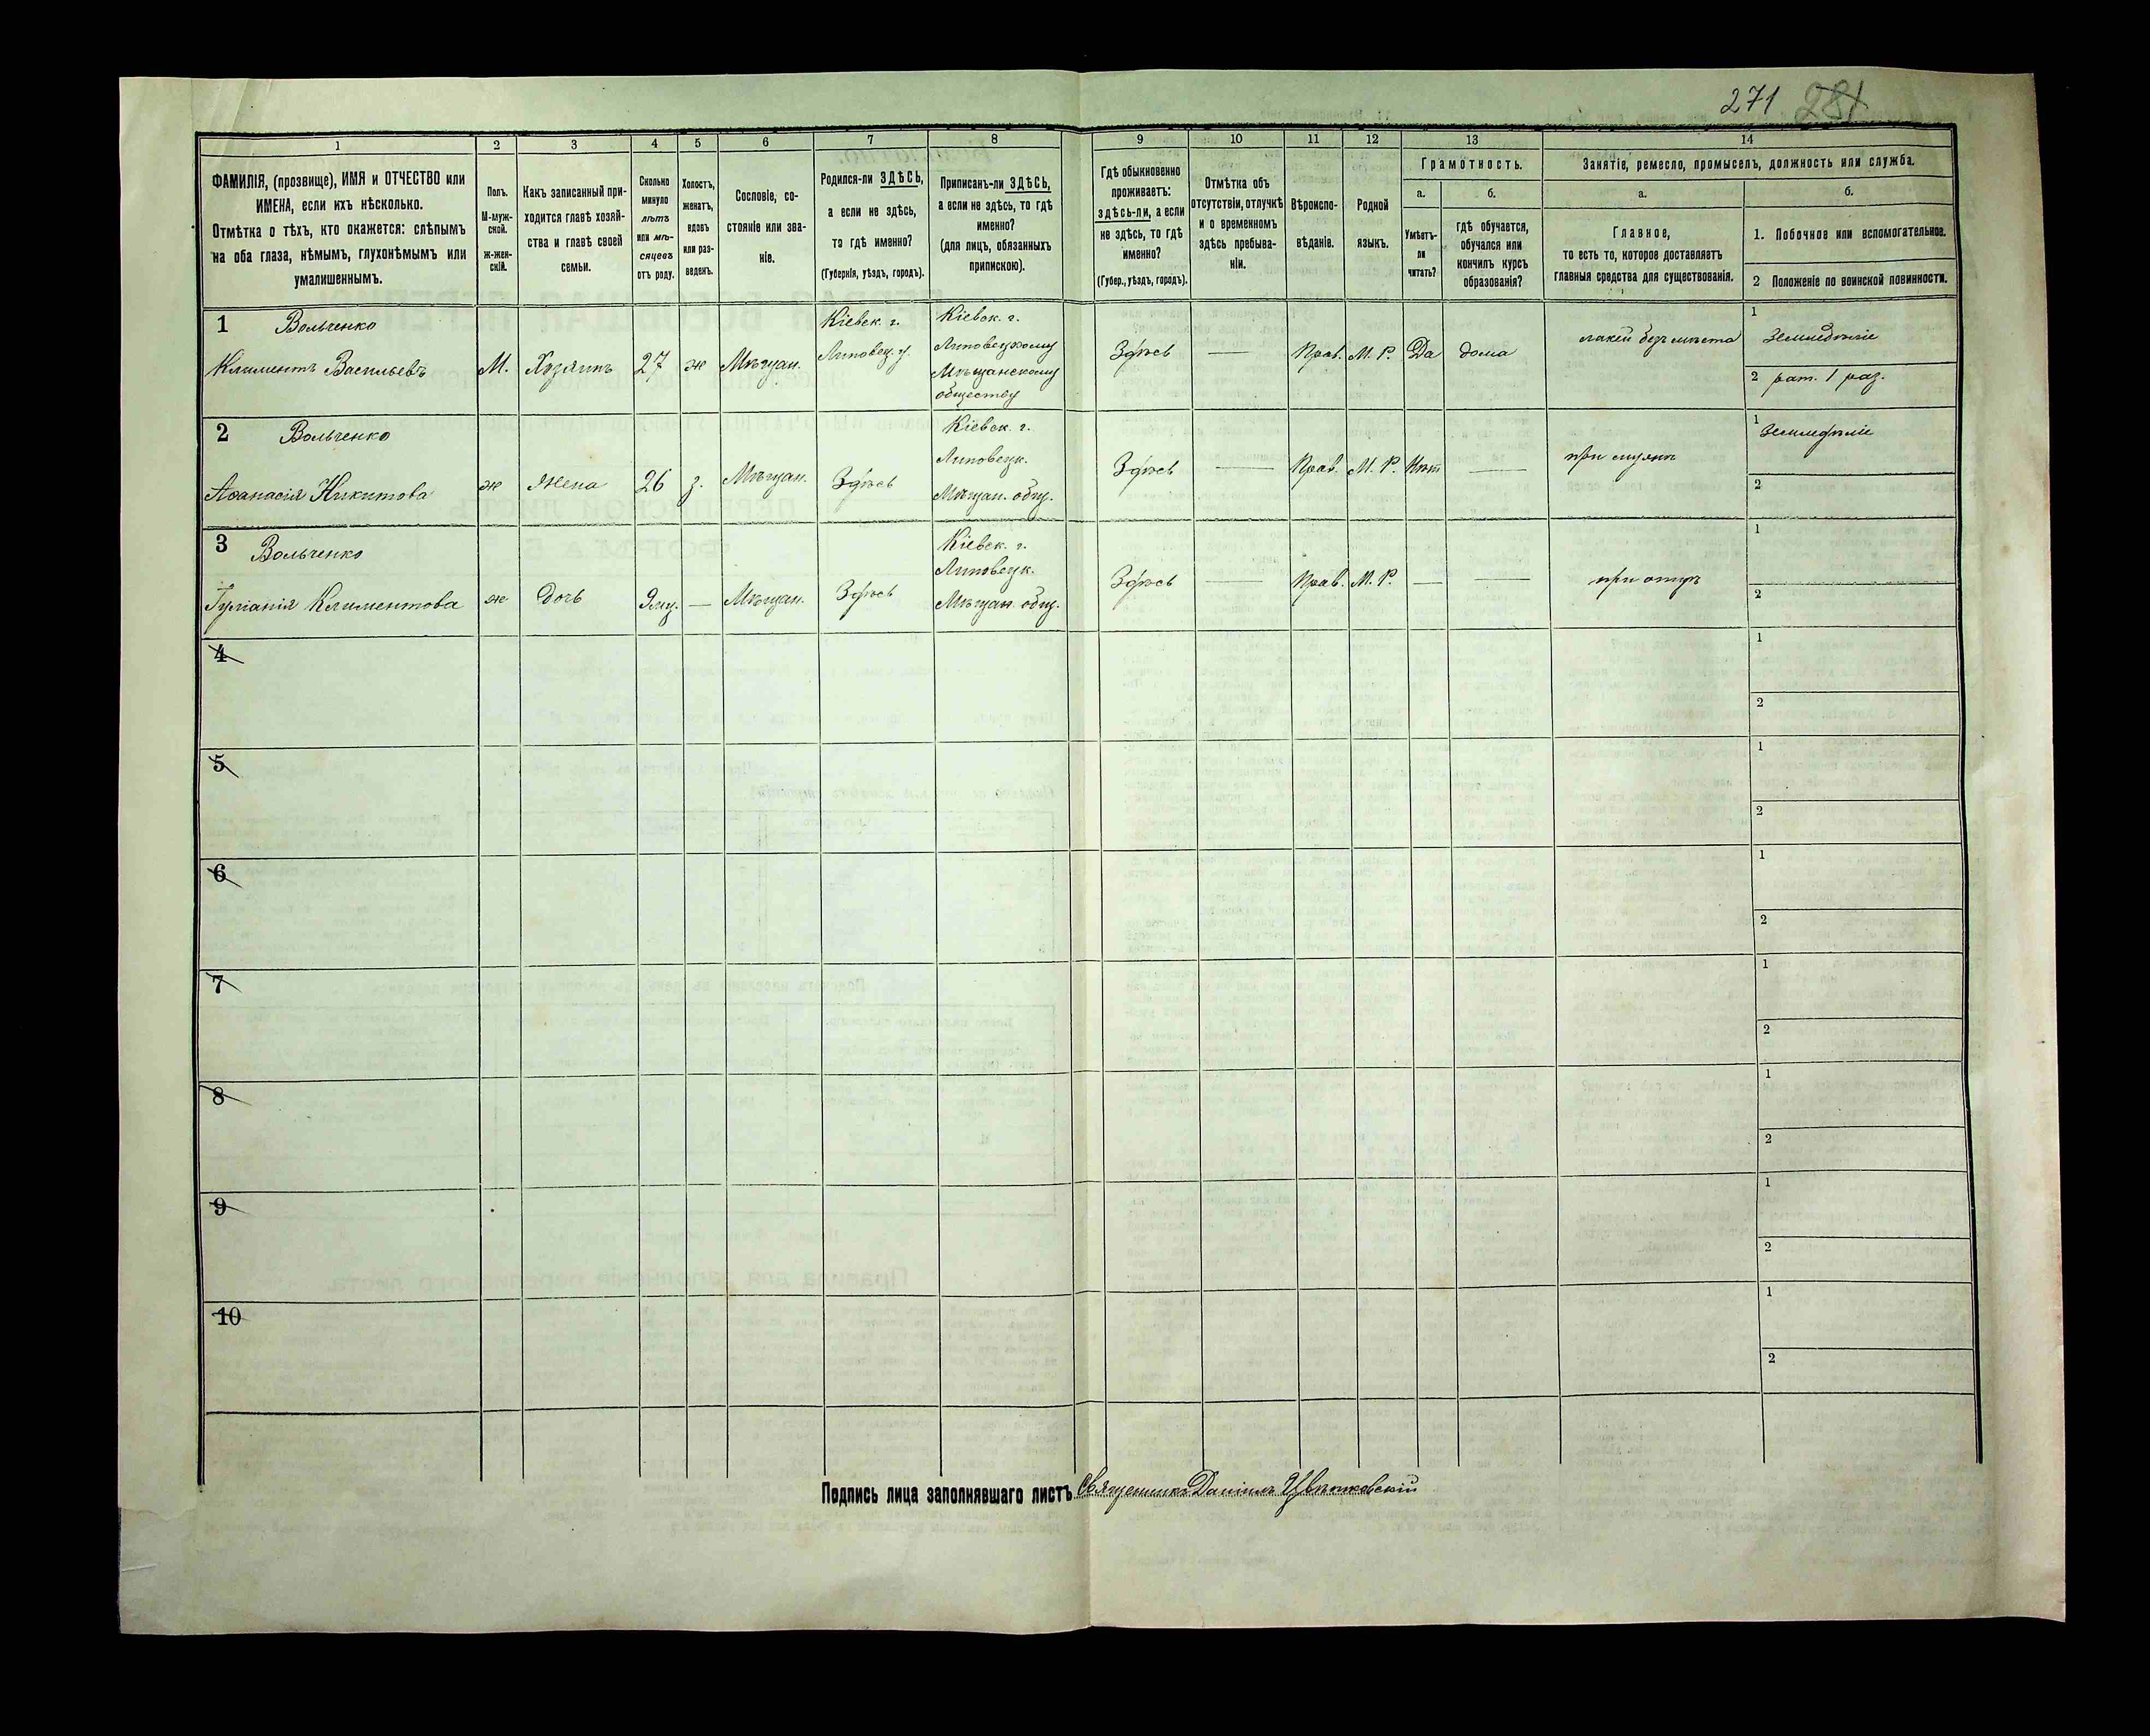 271 281
1 2 3 4 5 6 7 8 9 10 11 12 13 14
ФАМИЛІЯ, (прозвище), ИМЯ и ОТЧЕСТВО или
ИМЕНА, если ихъ нѣсколько.
Отмѣтка о тѣхъ, кто окажется: слѣпымъ
на оба глаза, нѣмымъ, глухонѣмымъ или
умалишеннымъ.
Полъ.
М-муж-
ской.
ж-жен-
скій.
Какъ записанный при-
ходится главѣ хозяй-
ства и главѣ своей
семьи.
Сколько
минуло
лѣтъ
или мѣ-
сяцевъ
отъ роду.
Холостъ,
женатъ,
вдовъ
или раз-
веденъ.
Сословіе, со-
стояніе или зва-
ніе.
Родился-ли ЗДѢСЬ,
а если не здѣсь,
то гдѣ именно?
(Губернія, уѣздъ, городъ).
Приписанъ-ли ЗДѢСЬ,
а если не здѣсь, то гдѣ
именно?
(для лицъ, обязанныхъ
припискою).
Гдѣ обыкновенно
проживаетъ:
здѣсь-ли, а если
не здѣсь, то гдѣ
именно?
(Губер., уѣздъ, городъ).
Отмѣтка объ
отсутствіи, отлучкѣ
и о временномъ
здѣсь пребыва-
ніи.
Вѣроиспо-
вѣданіе.
Родной
языкъ.
Грамотность.
а.
Умѣетъ-
ли
читать?
б.
гдѣ обучается,
обучался или
кончилъ курсъ
образованія?
Занятіе, ремесло, промыселъ, должность или служба.
а.
Главное,
то есть то, которое доставляетъ
главныя средства для существованія.
б.
1. Побочное или вспомогательное.
2 Положеніе по воинской повинности.
1 Вольченко
Климентъ Васильевъ
М.
Хозяинъ
27
ж
Мѣщан.
Кіевск. г.
Липовец. у.
Кіевск. г.
Липовецкому
Мѣщанскому
обществу
Здѣсь
—
Прав.
М. Р.
Да
дома
лакей безъ мѣста
1 Земледѣліе
2 рат. 1 раз.
2 Вольченко
Аѳанасія Никитова
ж
Жена
26
з.
Мѣщан.
Здѣсь
Кіевск. г.
Липовецк.
Мѣщан. общ.
Здѣсь
—
Прав.
М. Р.
Нѣт
—
при мужѣ
1 Земледѣліе
2
3 Вольченко
Іуліанія Климентова
ж
Дочь
9 мц.
—
Мѣщан.
Здѣсь
Кіевск. г.
Липовецк.
Мѣщан. общ.
Здѣсь
—
Прав.
М. Р.
—
—
при отцѣ
1
2
4
1
2
5
1
2
6
1
2
7
1
2
8
1
2
9
1
2
10
1
2
Подпись лица заполнявшаго листъ Священникъ Даніилъ Цвѣтковскій